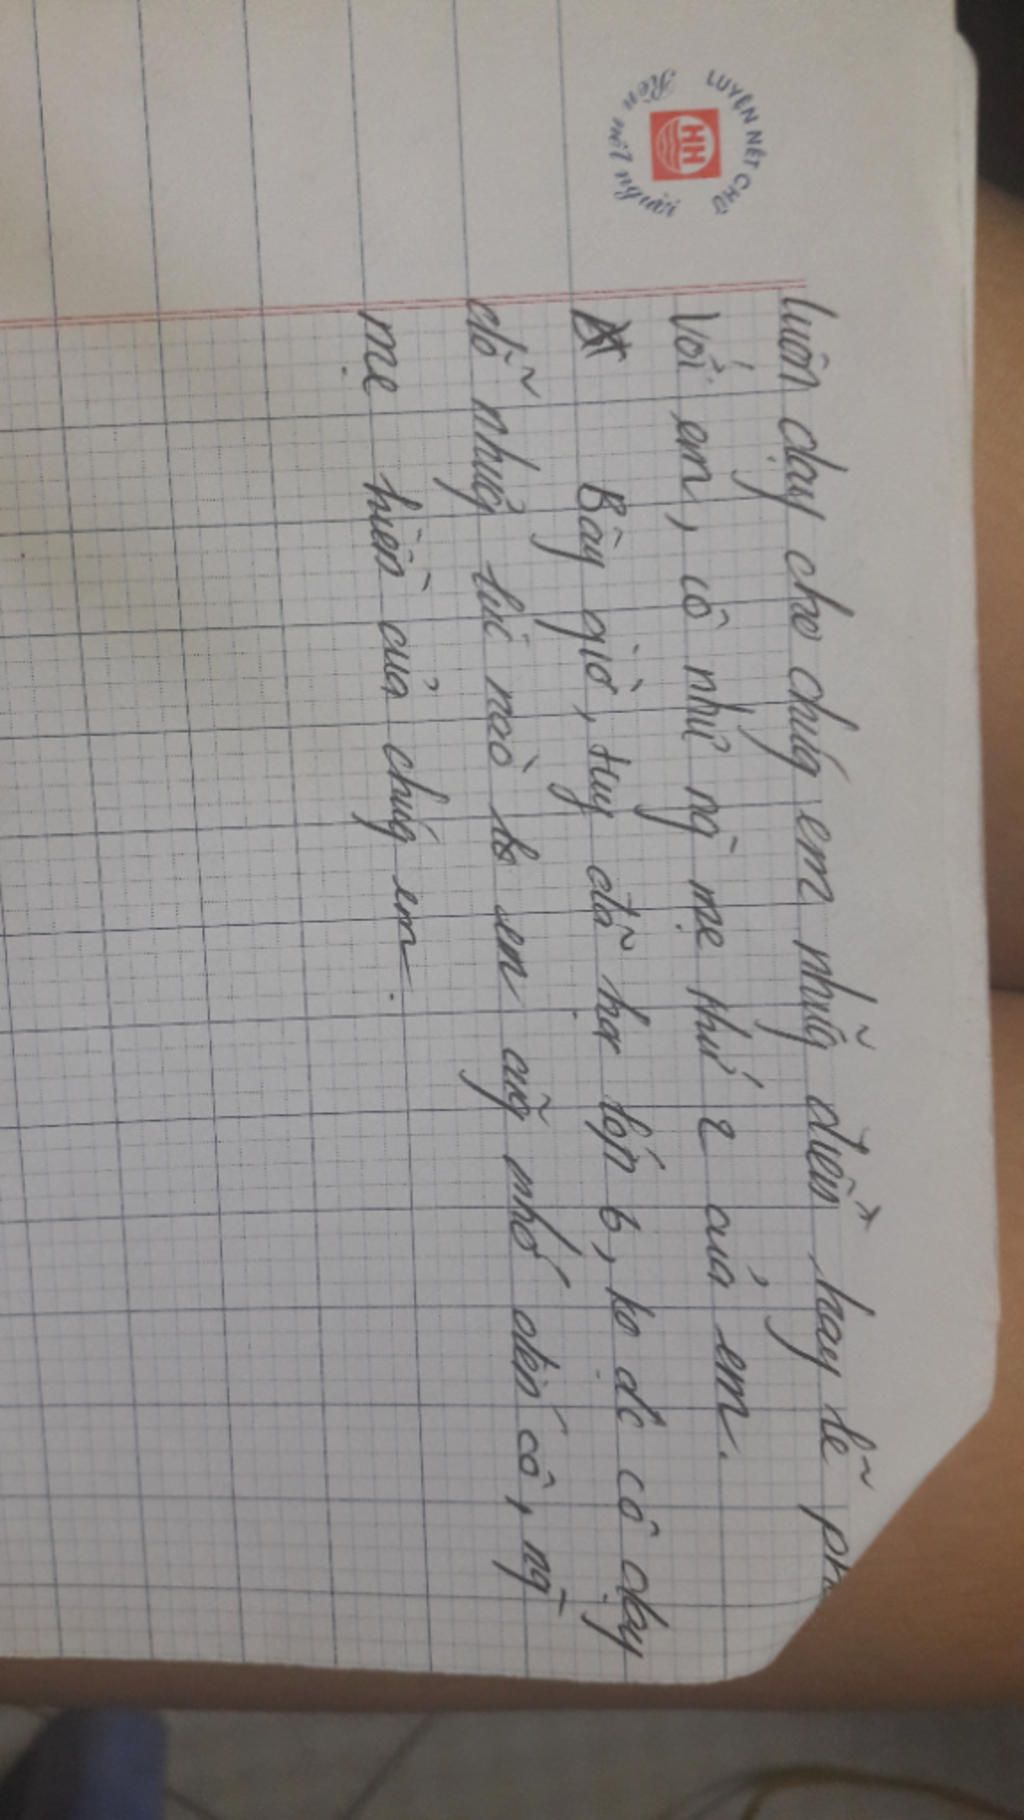 LUYỆN NÉT CHỮ
Rèn nết người
HH
luôn dạy cho chúg em nhữg điều hay lẽ ph
Với em, cô như ng` mẹ thứ 2 của em.
Bây giờ, tuy đã họ lớp 6, ko đc cô dạy
dỗ nhưg lúc nào em cũg nhớ đến cô, ng`
mẹ hiền của chúg em.